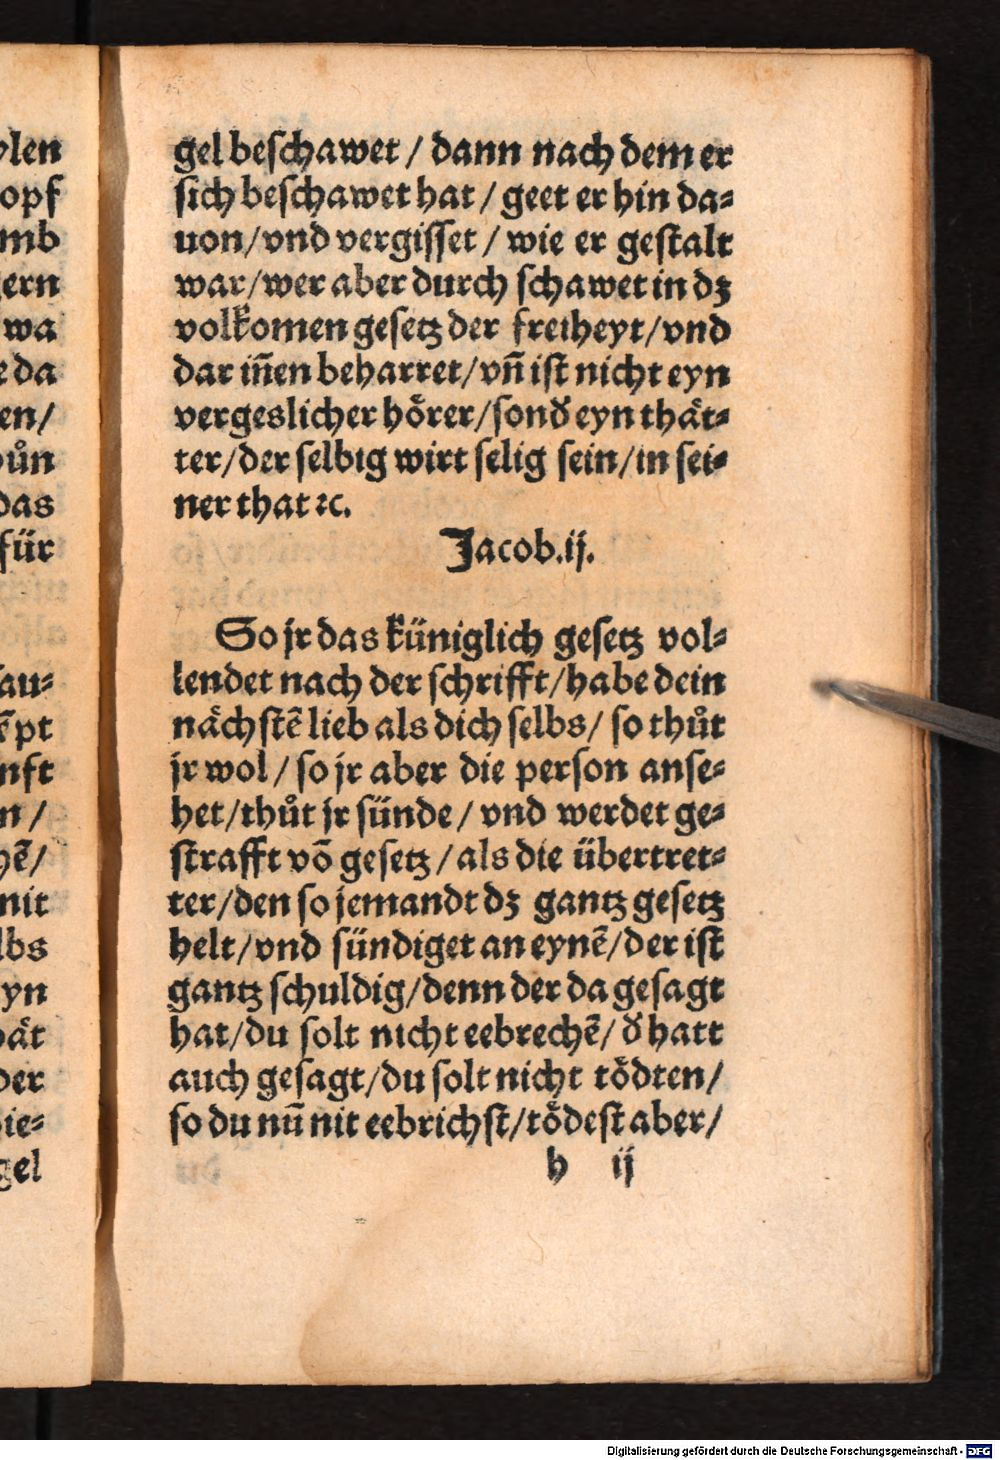 gel beschawet / dann nach dem er
sich beschawet hat / geet er hin da⸗
uon/vnd vergisset / wie er gestalt
war/wer aber durch schawet in dꝫ
volkomen gesetz der freiheyt/vnd
dar iñen beharret/vñ ist nicht eyn
vergeslicher hoͤrer/sonđ eyn thaͤt⸗
ter/der selbig wirt selig sein/in sei⸗
ner that ⁊c.
Jacob.ij.
So jr das küniglich gesetz vol⸗
lendet nach der schrifft/habe dein
naͤchstẽ lieb als dich selbs/ so thůt
jr wol / so jr aber die person anse⸗
het/thůt jr sünde/ vnd werdet ge⸗
strafft võ gesetz/als die übertret⸗
ter/den so jemandt dꝫ gantz gesetz
helt/vnd sündiget an eynẽ/der ist
gantz schuldig/denn der da gesagt
hat/du solt nicht eebrechẽ/ đ hatt
auch gesagt/du solt nicht toͤdten/
so du nũ nit eebrichst/toͤdest aber/
h ij
ylen
opf
mb
gern
wa
e da
en/
ůn
das
für
au⸗
ẽpt
nft
n /
hẽ/
nit
lbs
yn
aͤt
der
ie⸗
gel
Digitalisierung gefördert durch die Deutsche Forschungsgemeinschaft - DFG